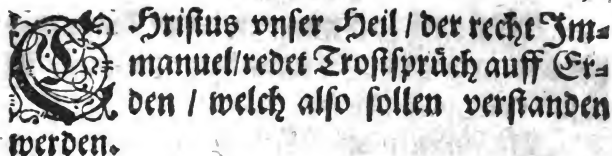 CHristus vnser Heil / der recht Im⸗
manuel/redet Trostsprüch auff Er⸗
den / welch also sollen verstanden
werden.